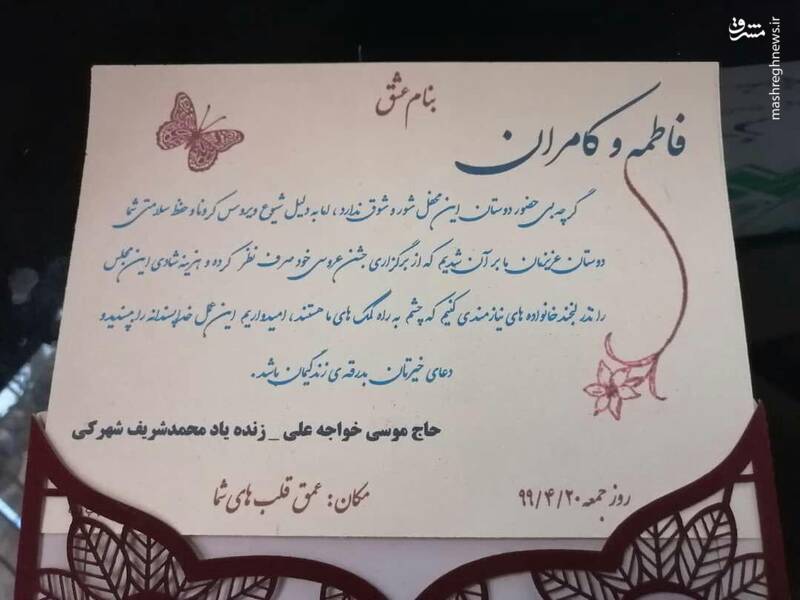 مشرق
mashreghnews.ir
بنام عشق
فاطمه و کامران
گرچه بی حضور دوستان این محفل شور و شوق ندارد، اما به دلیل شیوع ویروس کرونا و حفظ سلامتی شما
دوستان عزیزمان ما بر آن شدیم که از برگزاری جشن عروسی خود صرف نظر کرده و هزینه شادی این مجلس
را نذر لبخند خانواده های نیازمندی کنیم که چشم به راه کمک های ما هستند، امیدواریم این عمل خداپسندانه را بپسندید و
دعای خیرتان بدرقه ی زندگیمان باشد.
حاج موسی خواجه علی _ زنده یاد محمدشریف شهرکی
روز جمعه ۹۹/۴/۲۰
مکان: عمق قلب های شما